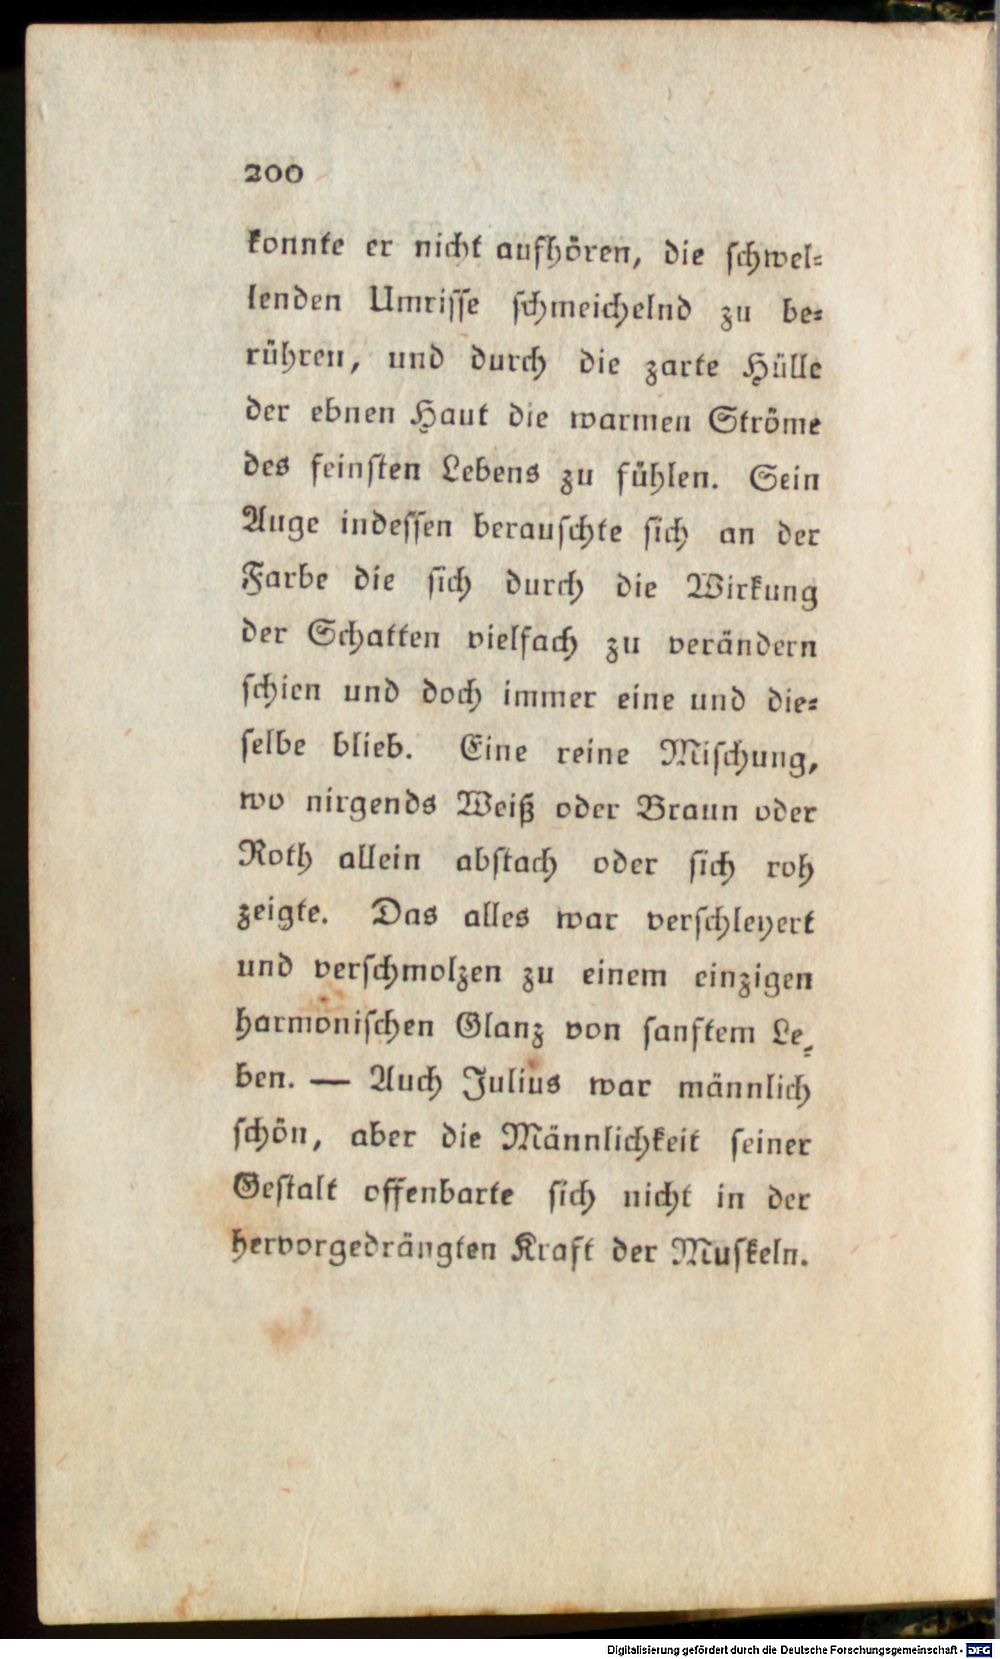 200
konnte er nicht aufhören, die ſchwel⸗
lenden Umriſſe ſchmeichelnd zu be⸗
rühren, und durch die zarte Hülle
der ebnen Haut die warmen Ströme
des feinſten Lebens zu fühlen. Sein
Auge indeſſen berauſchte ſich an der
Farbe die ſich durch die Wirkung
der Schatten vielfach zu verändern
ſchien und doch immer eine und die⸗
ſelbe blieb. Eine reine Miſchung,
wo nirgends Weiß oder Braun oder
Roth allein abſtach oder ſich roh
zeigte. Das alles war verſchleyert
und verſchmolzen zu einem einzigen
harmoniſchen Glanz von ſanftem Le⸗
ben. — Auch Julius war männlich
ſchön, aber die Männlichkeit ſeiner
Geſtalt offenbarte ſich nicht in der
hervorgedrängten Kraft der Muſkeln.
Digitalisierung gefördert durch die Deutsche Forschungsgemeinschaft - DFG